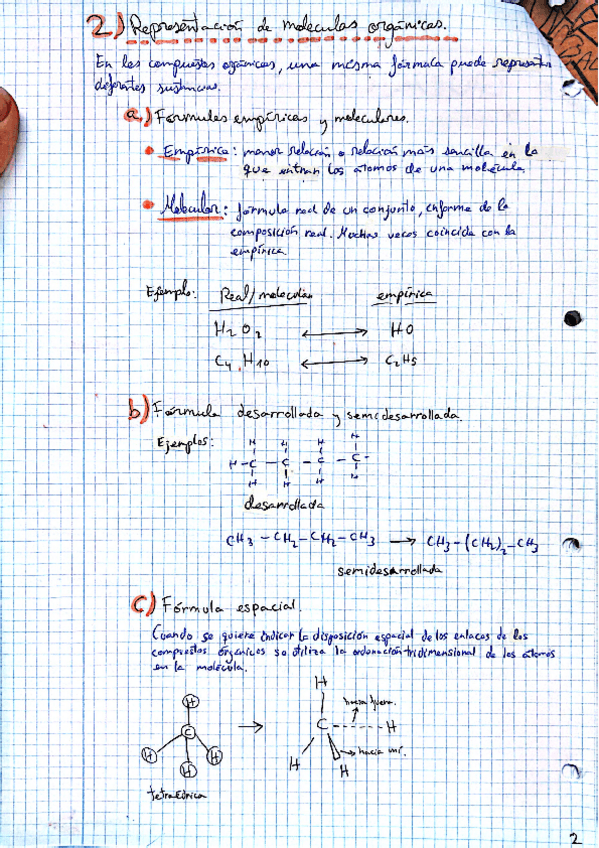 2) Representación de moleculas orgánicas.
En los compuestos orgánicos, una misma fórmula puede representar
diferentes sustancias.
a) Formulas empíricas y moleculares.
• Empírica: menor relación o relación más sencilla en la
que entran los átomos de una molécula.
• Molecular: fórmula real de un conjunto, informa de la
composición real. Muchas veces coincide con la
empírica.
Ejemplo: Real/molecular empírica
H2O2 ⟷ HO
C4H10 ⟷ C2H5
b) Fórmula desarrollada y semidesarrollada.
Ejemplos:
H H H H
H - C - C - C - C -
H H H H
desarrollada
CH3 - CH2 - CH2 - CH3 → CH3 - (CH2)2 - CH3
semidesarrollada
c) Fórmula espacial.
Cuando se quiere indicar la disposición espacial de los enlaces de los
compuestos orgánicos se utiliza la ordenación tridimensional de los átomos
en la molécula.
H
C
H H H
tetraédrica
→
H
hacia fuera.
C - - - - H
hacia mí.
H H
2